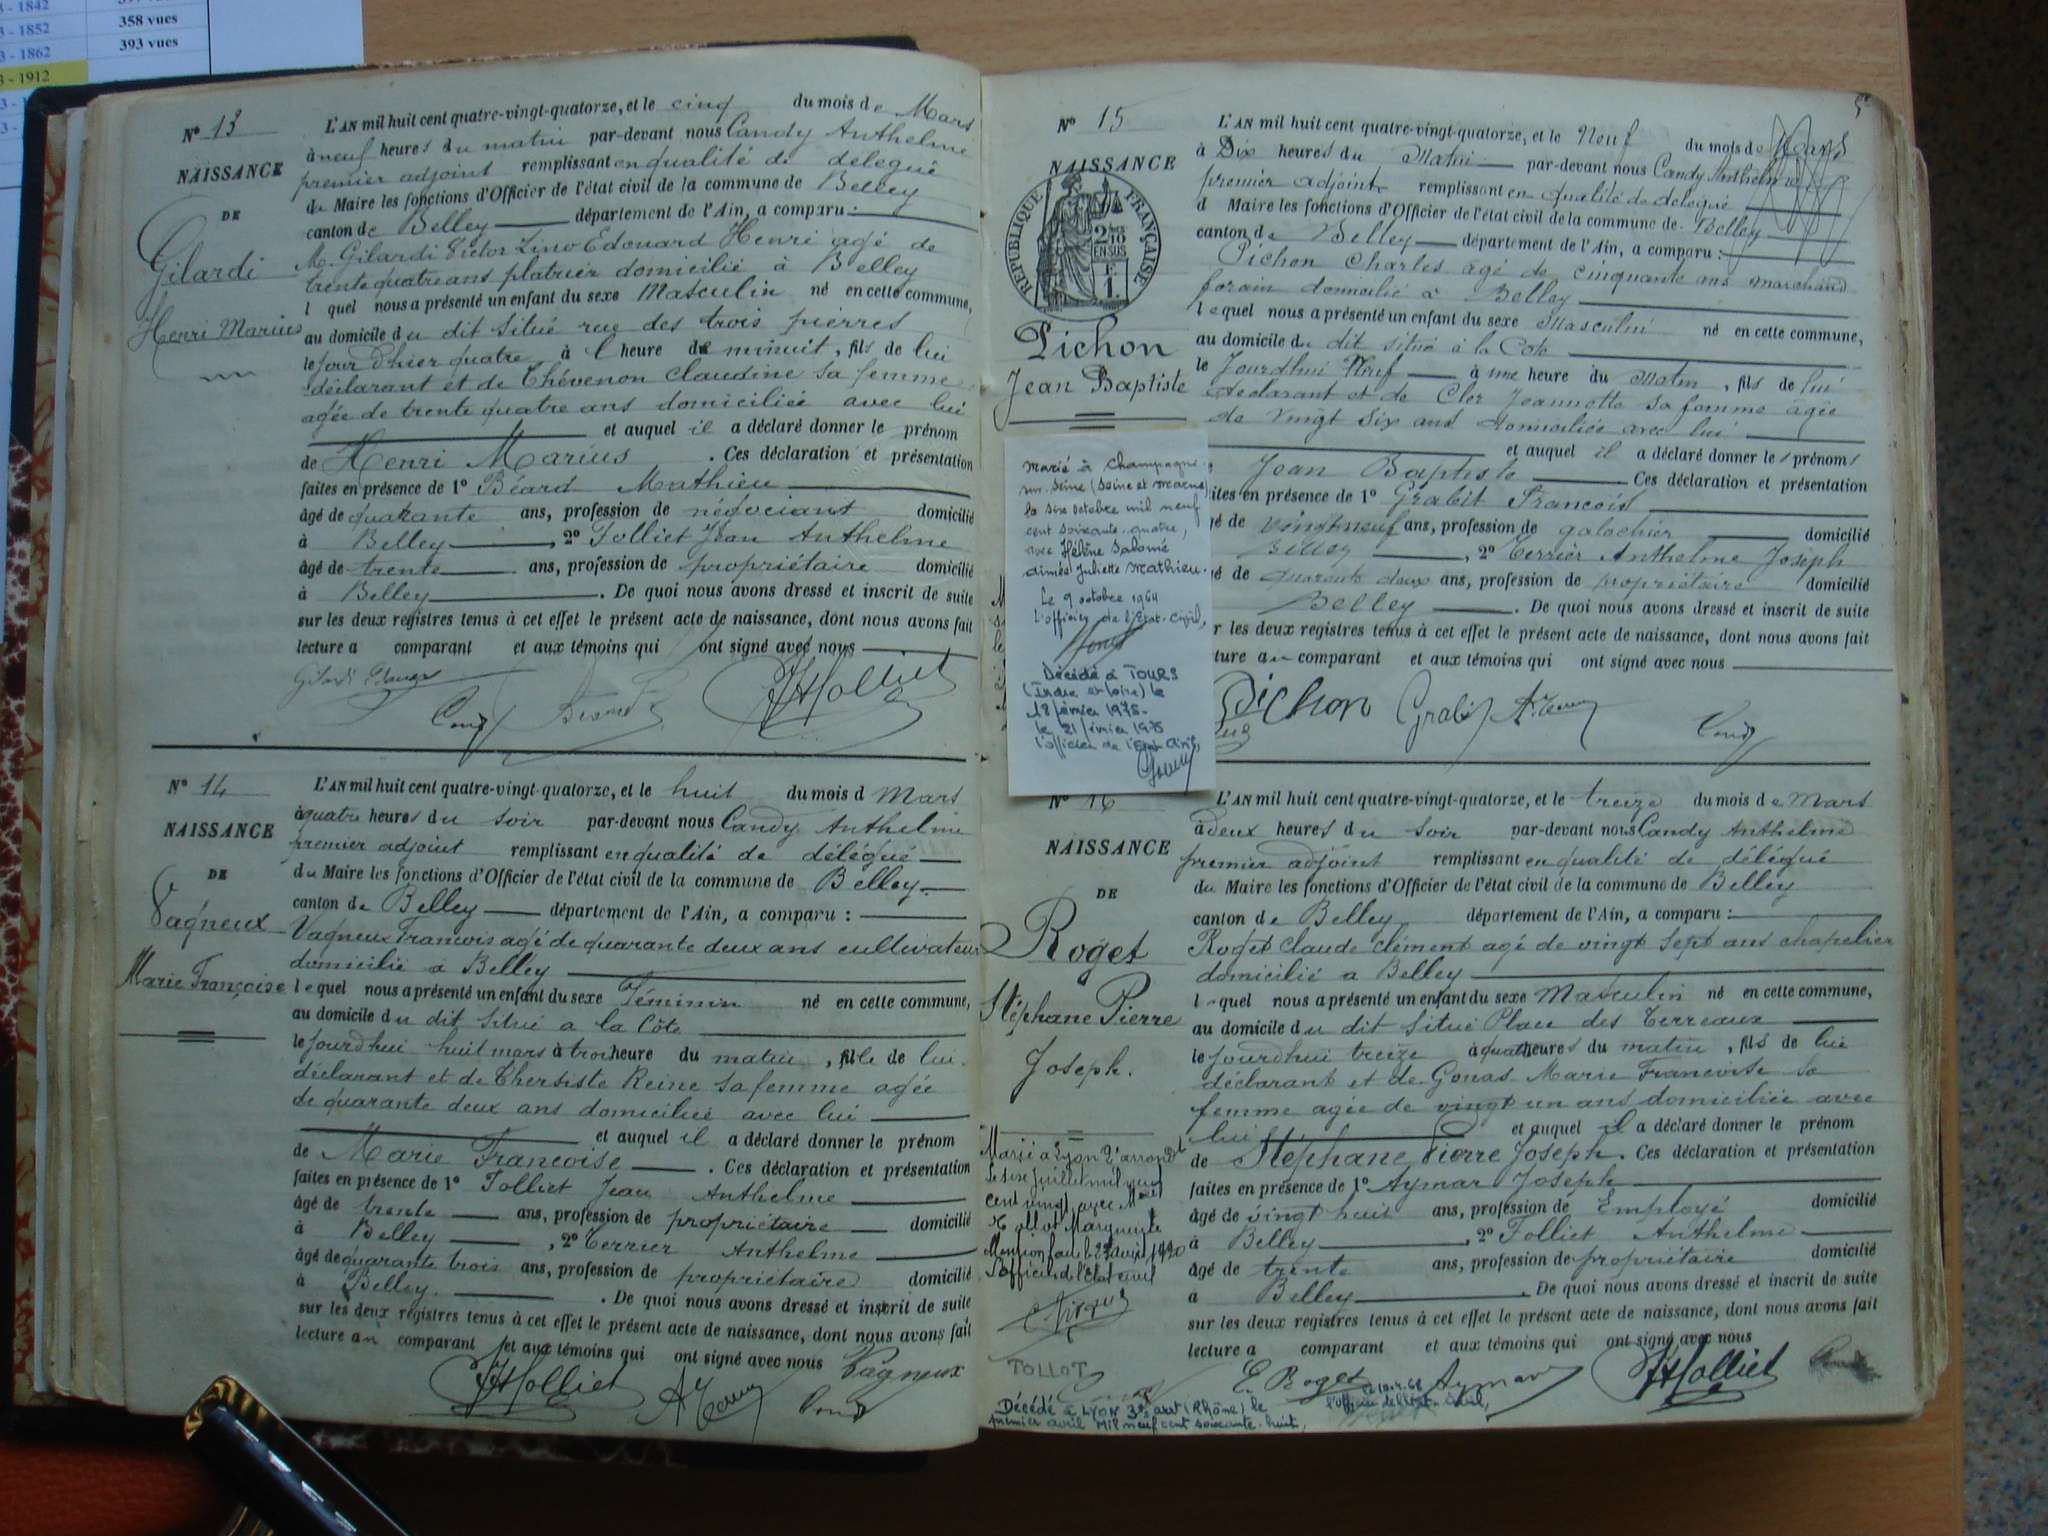 - 1842
- 1852
358 vues
- 1862
393 vues
- 1912
N° 13
NAISSANCE
DE
Gilardi
Henri Marius
L'AN mil huit cent quatre-vingt-quatorze, et le cinq du mois de Mars
à neuf heures du matin par-devant nous Candy Anthelme
premier adjoint remplissant en qualité de delegué
du Maire les fonctions d'Officier de l'état civil de la commune de Belley
canton de Belley département de l'Ain, a comparu :
M. Gilardi Victor Lino Edouard Henri agé de
trente quatre ans platrier domicilié à Belley
l quel nous a présenté un enfant du sexe Masculin né en cette commune,
au domicile du dit situé rue des trois pierres
le jour d'hier quatre à l heure de minuit, fils de lui
déclarant et de Thévenon Claudine sa femme
agée de trente quatre ans domiciliée avec lui
et auquel il a déclaré donner le prénom
de Henri Marius . Ces déclaration et présentation
faites en présence de 1° Béard Mathieu
âgé de quarante ans, profession de négociant domicilié
à Belley , 2° Tolliet Jean Anthelme
âgé de trente ans, profession de propriétaire domicilié
à Belley . De quoi nous avons dressé et inscrit de suite
sur les deux registres tenus à cet effet le présent acte de naissance, dont nous avons fait
lecture a comparant et aux témoins qui ont signé avec nous
Candy JATolliet
N° 14
NAISSANCE
DE
Vagneux
Marie Françoise
L'AN mil huit cent quatre-vingt-quatorze, et le huit du mois d Mars
à quatre heures du soir par-devant nous Candy Anthelme
premier adjoint remplissant en qualité de délégué
du Maire les fonctions d'Officier de l'état civil de la commune de Belley
canton de Belley département de l'Ain, a comparu :
Vagneux Francois agé de quarante deux ans cultivateur
domicilié a Belley
lequel nous a présenté un enfant du sexe Féminin né en cette commune,
au domicile du dit situé a la Côte
le jourdhui huit mars à trois heure du matin, fille de lui
déclarant et de Thersiste Reine sa femme agée
de quarante deux ans domiciliée avec lui
et auquel il a déclaré donner le prénom
de Marie Francoise . Ces déclaration et présentation
faites en présence de 1° Tolliet Jean Anthelme
âgé de trente ans, profession de propriétaire domicilié
à Belley , 2° Terrier Anthelme
âgé de quarante trois ans, profession de propriétaire domicilié
à Belley . De quoi nous avons dressé et inscrit de suite
sur les deux registres tenus à cet effet le présent acte de naissance, dont nous avons fait
lecture au comparant et aux témoins qui ont signé avec nous Vagneux
JATolliet Candy
N° 15
NAISSANCE
RÉPUBLIQUE FRANÇAISE
2/10
EN SUS
Pichon
Jean Baptiste
L'AN mil huit cent quatre-vingt-quatorze, et le Neuf du mois de Mars
à Dix heures du Matin par-devant nous Candy Anthelme
premier adjoint remplissant en qualité de delegué
d Maire les fonctions d'Officier de l'état civil de la commune de Belley
canton de Belley département de l'Ain, a comparu :
Pichon Charles âgé de cinquante ans marchand
forain domicilié à Belley
lequel nous a présenté un enfant du sexe Masculin né en cette commune,
au domicile du dit situé à la Cote
le Jourdhui Neuf à une heure du Matin, fils de lui
declarant et de Cler Jeannette sa femme âgée
de vingt six ans domiciliée avec lui
et auquel il a déclaré donner les prénoms
Jean Baptiste Ces déclaration et présentation
ites en présence de 1° Grabit François
gé de vingt neuf ans, profession de galochier domicilié
Belley , 2° Terrier Anthelme Joseph
é de quarante deux ans, profession de propriétaire domicilié
Belley . De quoi nous avons dressé et inscrit de suite
r les deux registres tenus à cet effet le présent acte de naissance, dont nous avons fait
ture au comparant et aux témoins qui ont signé avec nous
Pichon Grabit Candy
marié à Champagne
sur Seine (Seine et Marne)
le six octobre mil neuf
cent soixante quatre,
avec Hélène Salomé
aimée Juliette Mathieu.
Le 9 octobre 1964
L'officier de l'Etat-Civil,
Décédé à TOURS
(Indre et Loire) le
18 février 1975.
le 21 février 1975
l'officier de l'Etat Civil,
N° 16
NAISSANCE
DE
Roget
Stéphane Pierre
Joseph.
L'AN mil huit cent quatre-vingt-quatorze, et le treize du mois de Mars
à deux heures du soir par-devant nous Candy Anthelme
premier adjoint remplissant en qualité de délégué
du Maire les fonctions d'Officier de l'état civil de la commune de Belley
canton de Belley département de l'Ain, a comparu :
Roget Claude Clément agé de vingt sept ans chapelier
domicilié a Belley
lequel nous a présenté un enfant du sexe Masculin né en cette commune,
au domicile du dit situé Place des Terreaux
le jourdhui treize à quatre heures du matin, fils de lui
déclarant et de Gonas Marie Francoise sa
femme agée de vingt un ans domiciliée avec
lui et auquel il a déclaré donner le prénom
de Stéphane Pierre Joseph. Ces déclaration et présentation
faites en présence de 1° Aymar Joseph
âgé de vingt huit ans, profession de Employé domicilié
à Belley , 2° Tolliet Anthelme
âgé de trente ans, profession de propriétaire domicilié
à Belley . De quoi nous avons dressé et inscrit de suite
sur les deux registres tenus à cet effet le présent acte de naissance, dont nous avons fait
lecture a comparant et aux témoins qui ont signé avec nous
Roget Aymar JATolliet
Marié à Lyon 2e arrondt
le six juillet mil neuf
cent vingt avec
Tollot Marguerite
Mention faite le
L'officier de l'Etat civil
TOLLOT
Décédé à LYON 3e arrt (Rhône) le
premier avril mil neuf cent soixante huit,
l'officier de l'Etat Civil,